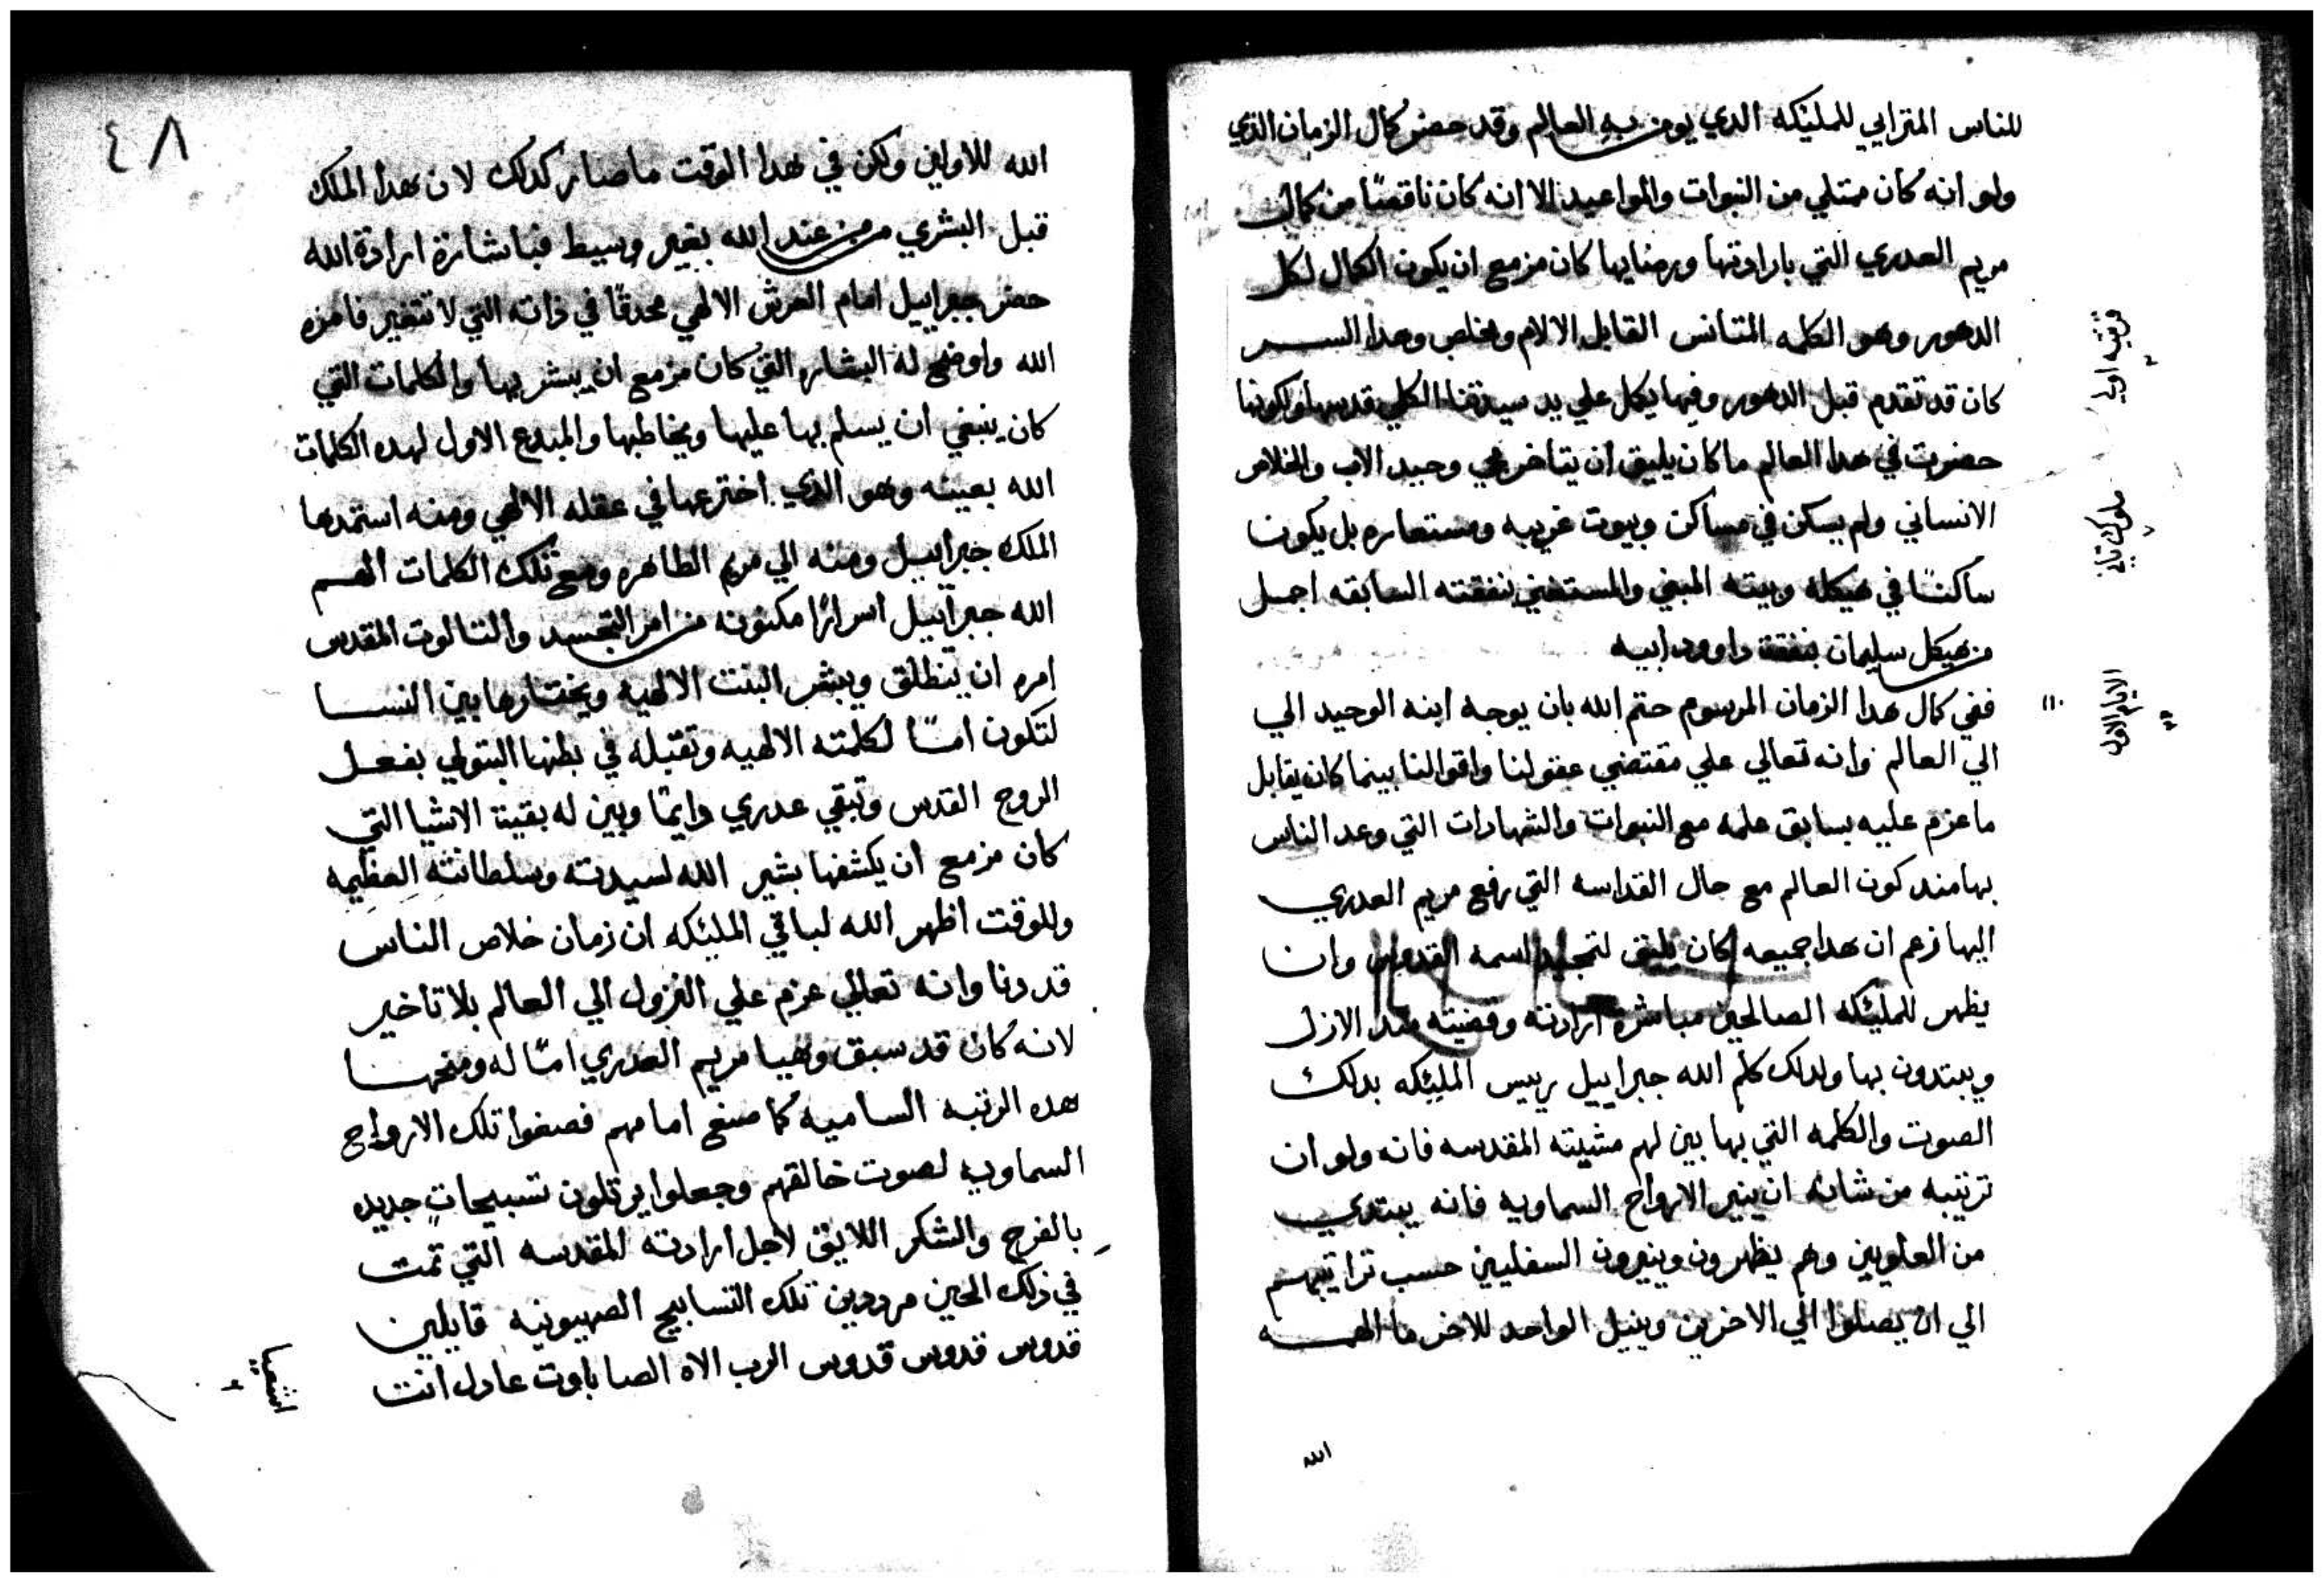 للناس المترايي للمليكه الدي يومن به العالم وقد حضر كمال الزمان الذي
ولو انه كان ممتلي من النبوات والمواعيد الا انه كان ناقصًا من كمال
مريم العدري التي بارادتها ورضايها كان مزمع ان يكون الكمال لكل
الدهور وهو الكلمه المتانس القابل الالام وخلص وهدا السر
كان قد تقدم قبل الدهور وفيها يكل علي يد سيدتنا الكلي قدسها ولكونها
حضرت في هدا العالم ما كان يليق ان يتاخر مجي وحيد الاب والخلاص
الانساني ولم يسكن في مساكن وبيوت غريبه ومستعاره بل يكون
ساكنًا في هيكله وبيته المبني والمستغني بنفقته السابقه اجمل
من هيكل سليمان بنفقة داوود ابيه
ففي كمال هدا الزمان المرسوم حتم الله بان يوجه ابنه الوحيد الي
الي العالم وانه تعالي علي مقتضي عقولنا واقوالنا بينما كان يقابل
ما عزم عليه بسابق علمه مع النبوات والشهادات التي وعد الناس
بها مند كون العالم مع حال القداسه التي رفع مريم العدري
اليها زعم ان هدا جميعه كان يليق لتمجيد اسمه القدوس وان
يظهر للمليكه الصالحين مباشرة ارادته وقضيته مند الازل
ويبتدون بها ولدلك كلم الله جبراييل رييس المليكه بدلك
الصوت والكلمه التي بها بين لهم مشيته المقدسه فانه ولو ان
ترتيبه من شانه ان ينير الارواح السماويه فانه يبتدي
من العلويين وهم يظهرون وينيرون السفليين حسب تراتيبهم
الي ان يصلوا الي الاخرين وينيل الواحد للاخر ما الهمه
الله
قرنتيه اولي
ملوك تاني
الايام الاول
١١٠
٤٨
الله للاولين ولكن في هدا الوقت ما صار كدلك لان هدا الملك
قبل البشري من عند الله بغير وسيط فباشارة ارادة الله
حضر جبراييل امام العرش الالهي محدقًا في ذاته التي لا تتغير فامره
الله واوضح له البشاره التي كان مزمع ان يبشر بها والكلمات التي
كان ينبغي ان يسلم بها عليها ويخاطبها والمبدع الاول لهده الكلمات
الله بعينه وهو الذي اخترعها في عقله الالهي ومنه استمدها
الملك جبراييل ومنه الي مريم الطاهره ومع تلك الكلمات الهم
الله جبراييل اسرارًا مكنونه من امر التجسد والتالوت المقدس
امره ان ينطلق ويبشر البنت الالهيه ويختارها بين النسا
لتكون امًا لكلمته الالهيه وتقبله في بطنها البتولي بفعل
الروح القدس وتبقي عدري دايمًا وبين له بقية الاشيا التي
كان مزمع ان يكشفها بشير الله لسيدته وسلطانته العظيمه
وللوقت اظهر الله لباقي المليكه ان زمان خلاص الناس
قد دنا وانه تعالي عزم علي النزول الي العالم بلا تاخير
لانه كان قد سبق وهيا مريم العدري امًا له ومنحها
هده الرتبه الساميه كما صنع امامهم فصغوا تلك الارواح
السماويه لصوت خالقهم وجعلوا يرتلون تسبيحاتٍ جديده
بالفرح والشكر اللايق لاجل ارادته المقدسه التي تمت
في ذلك الحين مرددين تلك التسابيح الصهيونيه قايلين
قدوس قدوس قدوس الرب الاه الصاباوت عادل انت
اشعيا